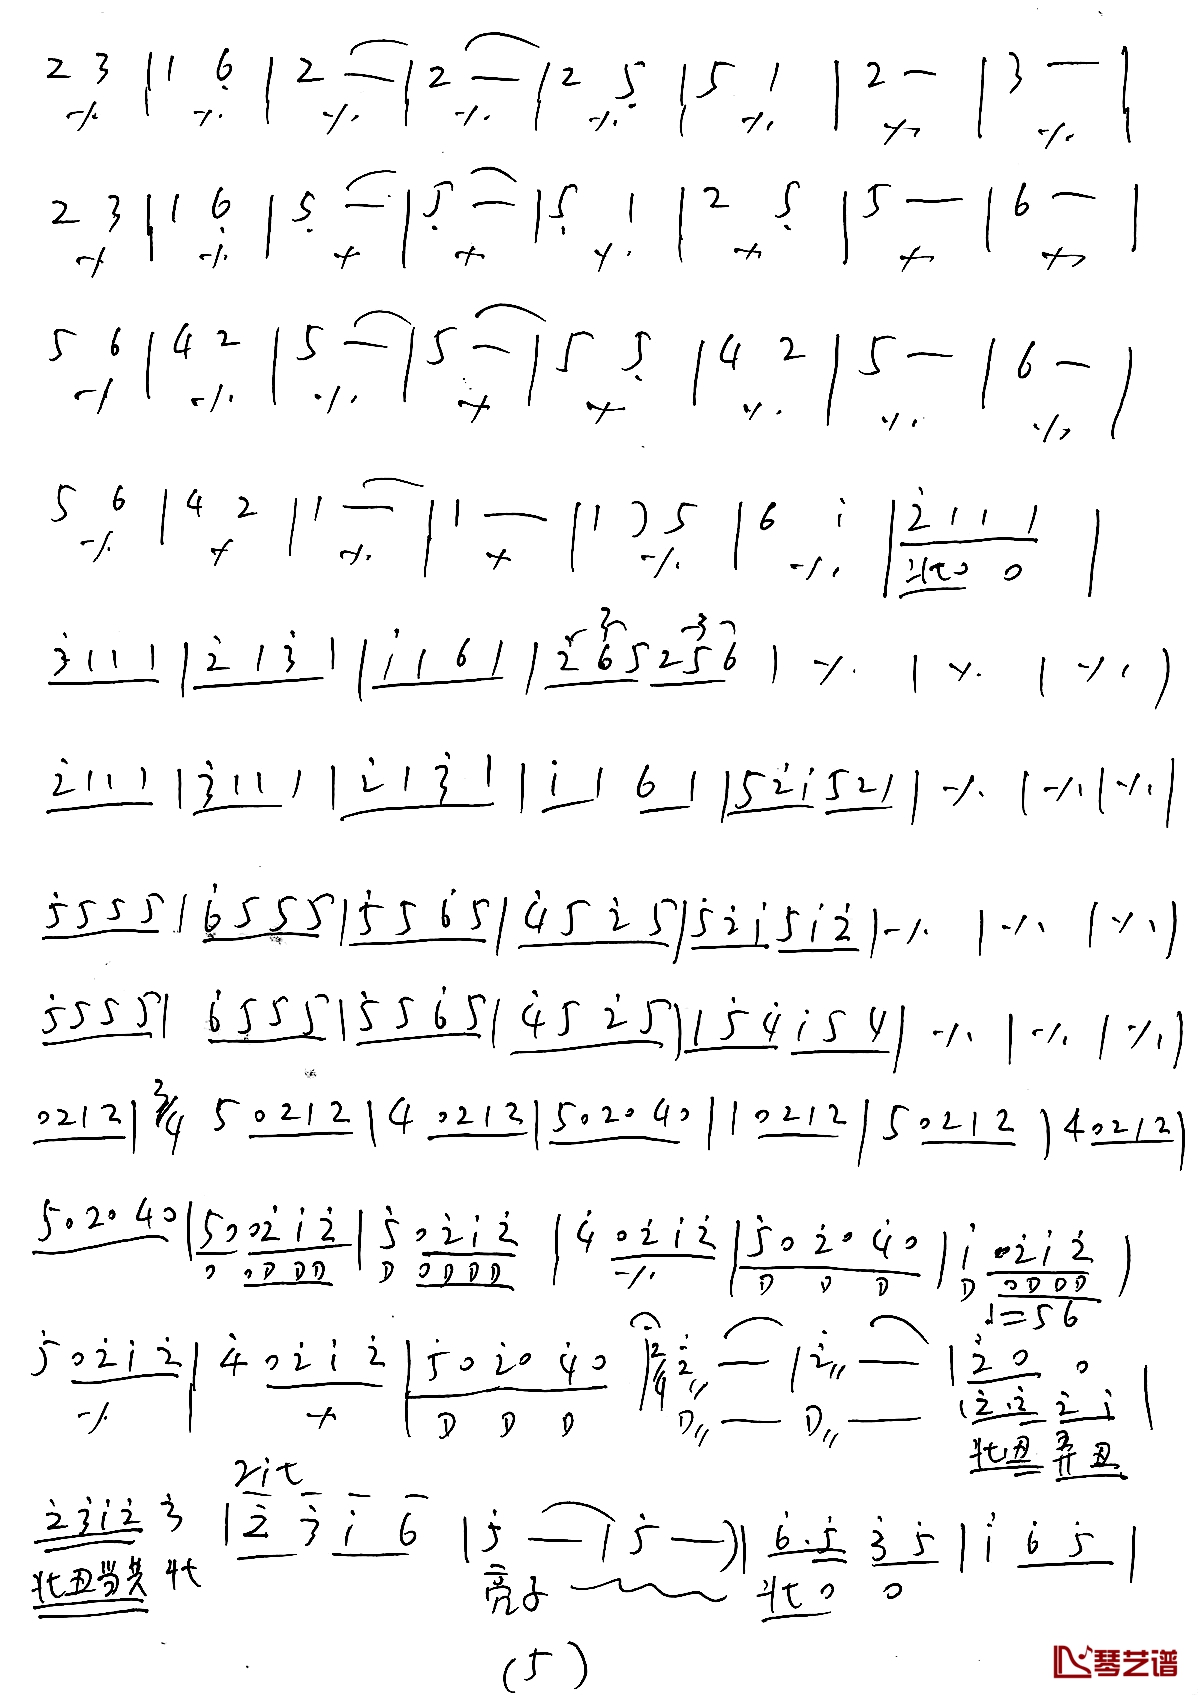 2 3 | 1 6̣ | 2 — | 2 — | 2 5̣ | 5 1 | 2 — | 3 — |
٪ ٪ ٪ ٪ ٪ ٪ ٪ ٪
2 3 | 1 6̣ | 5̣ — | 5̣ — | 5̣ 1 | 2 5̣ | 5 — | 6 — |
٪ ٪ ٪ ٪ ٪ ٪ ٪ ٪
5 6 | 4 2 | 5 — | 5 — | 5 5̣ | 4 2 | 5 — | 6 — |
٪ ٪ ٪ ٪ ٪ ٪ ٪ ٪
5 6 | 4 2 | 1 — | 1 — | 1 ) 5 | 6 i | 2̇ 1 1 1 |
٪ ٪ ٪ ٪ ٪ ٪ 0 0
3̇ 1 1 1 | 2̇ 1 3̇ 1 | i 1 6 1 | 2̇ 6 5 2 5 6 | ٪ | ٪ | ٪ )
3 3
2̇ 1 1 1 | 3̇ 1 1 1 | 2̇ 1 3̇ 1 | i 1 6 1 | 5 2̇ i 5 2 1 | ٪ | ٪ | ٪ |
5̇ 5 5 5 | 6̇ 5 5 5 | 5̇ 5 6̇ 5 | 4̇ 5 2̇ 5 | 5̇ 2̇ i 5 i 2̇ | ٪ | ٪ | ٪ |
5̇ 5 5 5 | 6̇ 5 5 5 | 5̇ 5 6̇ 5 | 4̇ 5 2̇ 5 | 1 5̇ 4̇ i 5 4 | ٪ | ٪ | ٪ )
0 2 1 2 | 3/4 5 0 2 1 2 | 4 0 2 1 2 | 5 0 2 0 4 0 | 1 0 2 1 2 | 5 0 2 1 2 | 4 0 2 1 2 |
5 0 2 0 4 0 | 5 0 0 2̇ i 2̇ | 5̇ 0 2̇ i 2̇ | 4̇ 0 2̇ i 2̇ | 5̇ 0 2̇ 0 4̇ 0 | i 0 2̇ i 2̇ |
0 0 D D D D 0 D D D ٪ D D D D 0 D D D
♩=56
5̇ 0 2̇ i 2̇ | 4̇ 0 2̇ i 2̇ | 5̇ 0 2̇ 0 4̇ 0 | 2/4 2̇ — | 2̇ — | 2̇ 0 0
٪ ٪ D D D D — D — ( 2̇. 2̇ 2̇ i |
丑 丑
rit
2̇ 3̇ i 2̇ 3̇ | 2̇ 3̇ i 6 | 5̇ — | 5̇ — ) | 6̇. 5̇ 3̇ 5̇ | i 6̇ 5̇ |
丑 亮子 0 0
(5)
琴艺谱